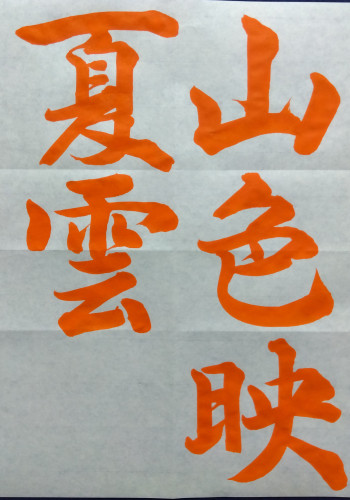 山色映
夏雲